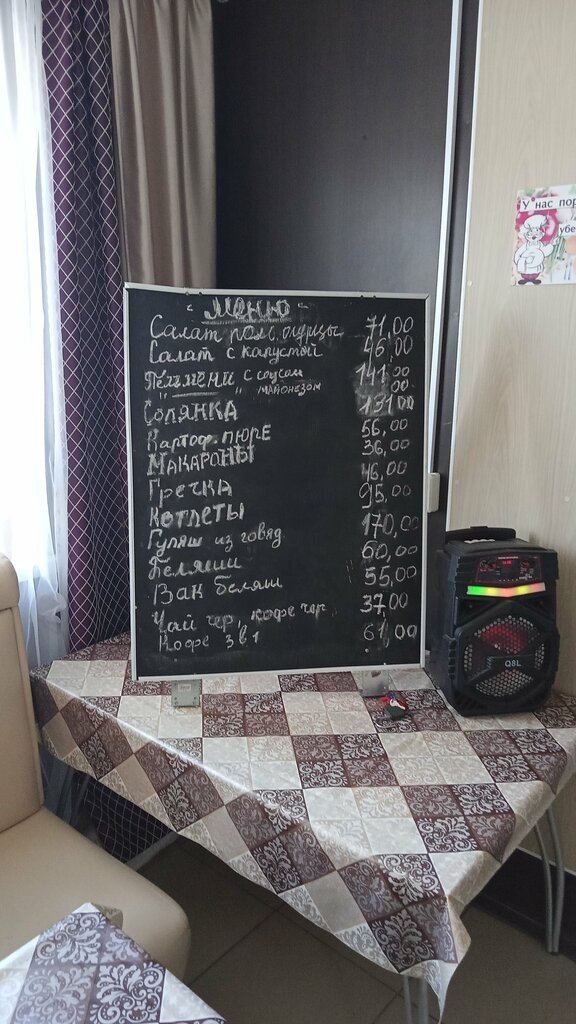 Меню
Салат пом. огурцы 71,00
Салат с капустой 46,00
Пельмени с соусом 141,00
" " майонезом
СОЛЯНКА 131,00
Картоф. ПЮРЕ 56,00
МАКАРОНЫ 36,00
Гречка 46,00
КОТЛЕТЫ 95,00
Гуляш из говяд 170,00
Беляши 60,00
Вак беляш 55,00
Чай чер, кофе чер 37,00
Кофе 3в1 61,00
У нас
Q8L